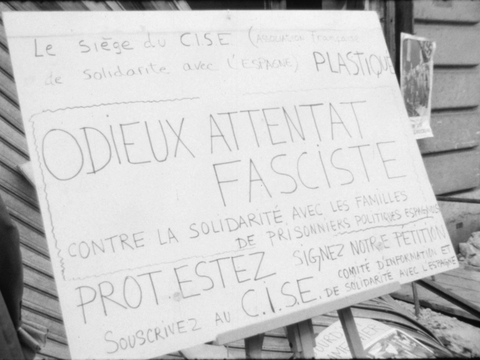 Le Siège du C.I.S.E (Association Française
de Solidarité avec L'ESPAGNE) PLASTIQUÉ
ODIEUX ATTENTAT
FASCISTE
CONTRE LA SOLIDARITÉ AVEC LES FAMILLES
DE PRISONNIERS POLITIQUES ESPAGNOLS
PROTESTEZ SIGNEZ NOTRE PÉTITION
SOUSCRIVEZ AU C.I.S.E. COMITÉ D'INFORMATION ET
DE SOLIDARITÉ AVEC L'ESPAGNE